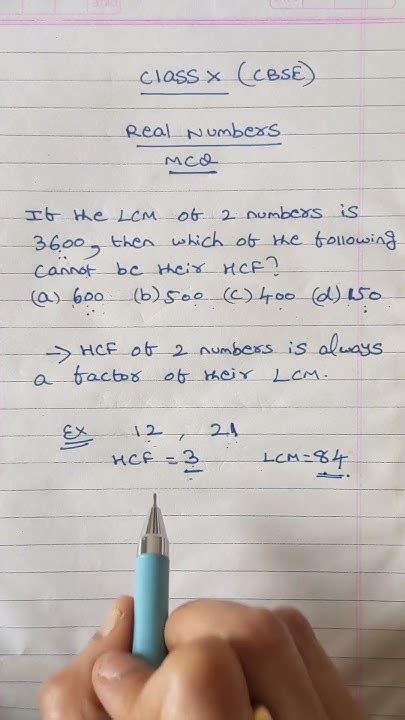 Class X (CBSE)
Real Numbers
MCQ
If the LCM of 2 numbers is
3600, then which of the following
cannot be their HCF?
(a) 600 (b) 500 (c) 400 (d) 150
→ HCF of 2 numbers is always
a factor of their LCM.
Ex 12 , 21
HCF = 3 LCM = 84